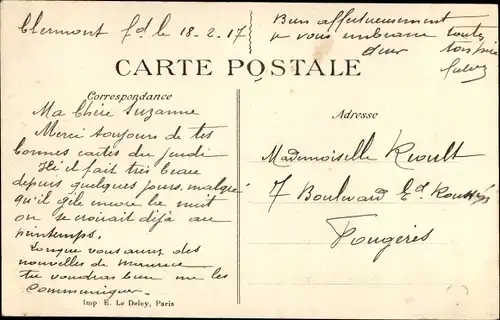 Clermont fd le 18-2-17
Bien affectueusement
à vous embrasse toutes
deux
CARTE POSTALE
Correspondance
Adresse
Ma Chère Suzanne
Merci toujours de tes
bonnes cartes du jeudi
Ici il fait très beau
depuis quelques jours, malgré
qu'il gèle encore la nuit
on se croirait déjà au
printemps.
Lorsque vous aurez des
nouvelles de Maurice
tu voudras bien me les
communiquer.
Mademoiselle Rioult
7 Boulevard Ed.
Fougères
Imp E. Le Deley, Paris